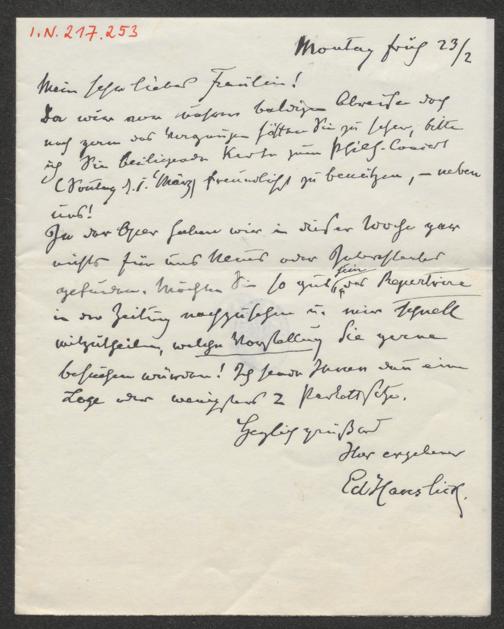 I.N. 217.253
Montag früh 23/2
Mein sehr liebes Fräulein!
Da wir vor unserer baldigen Abreise doch
noch gern das Vergnügen hätten Sie zu sehen, bitte
ich Sie beiliegende Karte zum Philh-Concert
(Sontag d. 1. März) freundlichst zu benützen, – neben
uns!
In der Oper haben wir in dieser Woche gar
nichts für uns Neues oder Interessantes
gefunden. Möchten Sie so gut sein, das Repertoire
in der Zeitung nachzusehen u. mir schnell
mitzutheilen, welche Vorstellung Sie gerne
besuchen würden! Ich sende Ihnen dann eine
Loge oder wenigstens 2 Parkettsitze.
Herzlich grüßend
Ihr ergebener
Ed Hanslick.